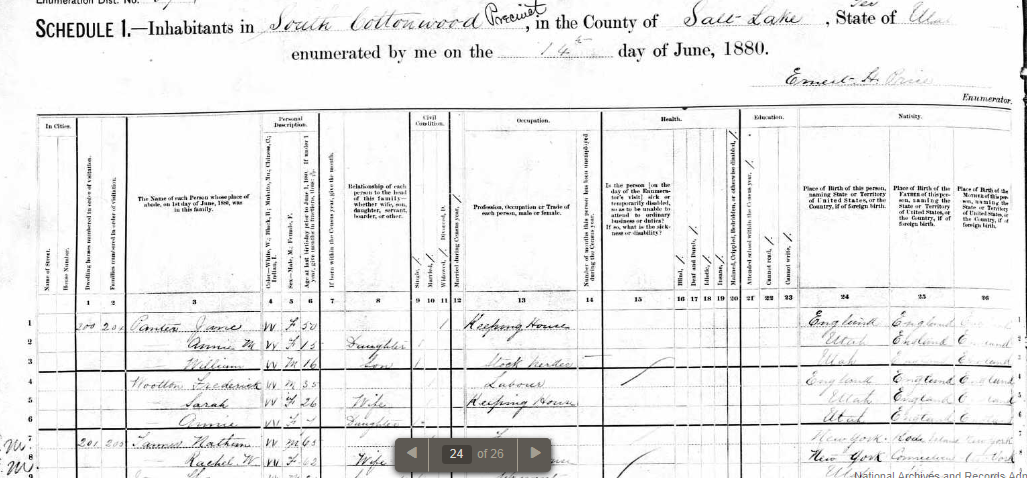 Enumeration Dist. No.
SCHEDULE 1.—Inhabitants in South Cottonwood Precinct, in the County of Salt Lake, State of Uta
Ter
enumerated by me on the 14th day of June, 1880.
Ernest H. Price
Enumerator.
In Cities.
Name of Street.
House Number.
Dwelling houses numbered in order of visitation.
Families numbered in order of visitation.
The Name of each Person whose place of abode, on 1st day of June, 1880, was in this family.
Personal Description.
Color—White, W.; Black, B.; Mulatto, Mu.; Chinese, C.; Indian, I.
Sex—Male, M.; Female, F.
Age at last birthday prior to June 1, 1880. If under 1 year, give months in fractions
If born within the Census year, give the month.
Relationship of each person to the head of this family—whether wife, son, daughter, servant, boarder, or other.
Civil Condition.
Single, /
Married, /
Widowed, / Divorced, D.
Married during Census year, /
Occupation.
Profession, Occupation or Trade of each person, male or female.
Number of months this person has been unemployed during the Census year.
Health.
Is the person [on the day of the Enumerator's visit] sick or temporarily disabled, so as to be unable to attend to ordinary business or duties? If so, what is the sickness or disability?
Blind, /
Deaf and Dumb, /
Idiotic, /
Insane, /
Maimed, Crippled, Bedridden, or otherwise disabled, /
Education.
Attended school within the Census year, /
Cannot read, /
Cannot write, /
Nativity.
Place of Birth of this person, naming State or Territory of United States, or the Country, if of foreign birth.
Place of Birth of the FATHER of this person, naming the State or Territory of United States, or the Country, if of foreign birth.
Place of Birth of the MOTHER of this person, naming the State or Territory of United States, or the Country, if of foreign birth.
1 2 3 4 5 6 7 8 9 10 11 12 13 14 15 16 17 18 19 20 21 22 23 24 25 26
1 200 Jane W F 50 / Keeping House England England
2 Annie M W F 15 Daughter Utah England England
3 William W M 16 Son Stock Herder Utah England
4 Wootton Frederick W M 35 Labour England England England
5 Sarah W F 26 Wife Keeping House Utah England
6 Annie W F Daughter Utah England England
7 201 W M 65 New York Rode Island New York
8 Rachel W. W F 62 Wife New York York
9 Utah
24 of 26
National Archives and Records Adm